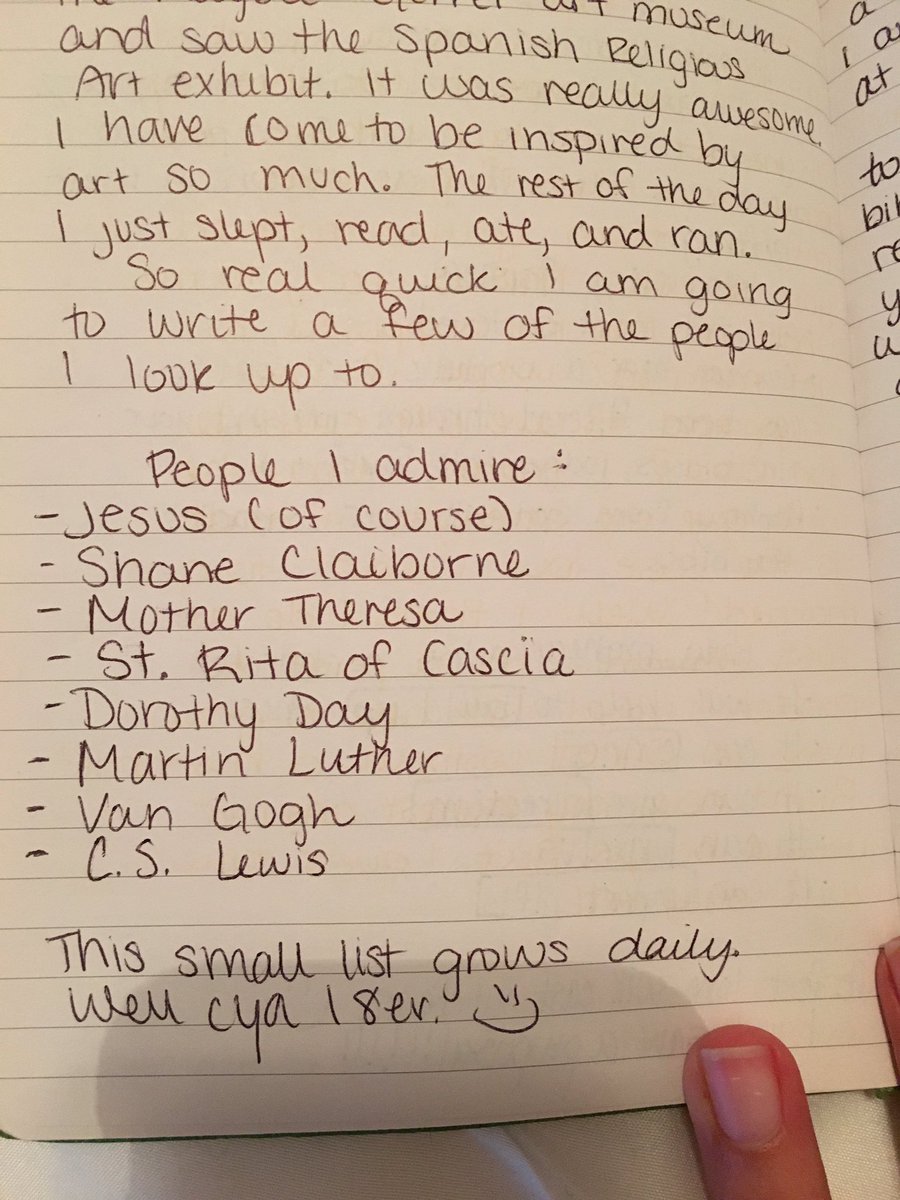 art museum a
and saw the Spanish Religious I a
Art exhibit. It was really awesome. at
I have come to be inspired by
art so much. The rest of the day to
I just slept, read, ate, and ran. bil
So real quick I am going re
to write a few of the people y
I look up to. u
People I admire:
- Jesus (of course)
- Shane Claiborne
- Mother Theresa
- St. Rita of Cascia
- Dorothy Day
- Martin Luther
- Van Gogh
- C.S. Lewis
This small list grows daily.
Well cya l8er.